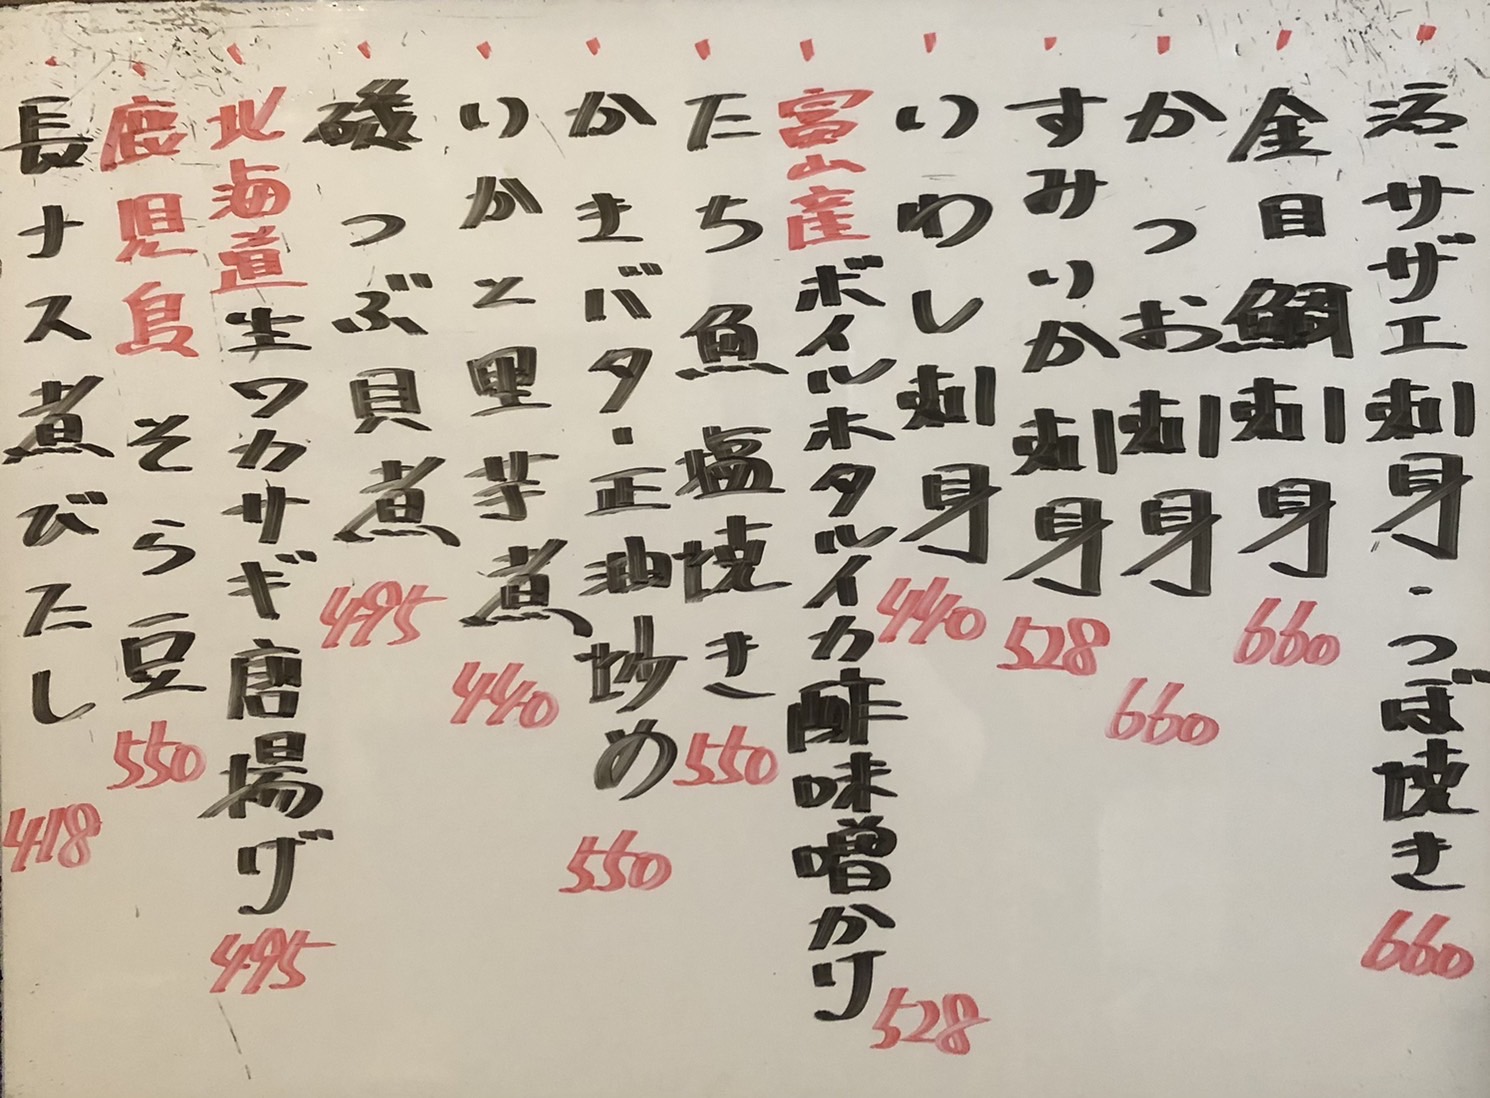 活サザエ刺身・つぼ焼き 660
金目鯛刺身 660
かつお刺身 660
すみいか刺身 528
いわし刺身 440
富山産ボイルホタルイカ酢味噌かけ 528
たち魚塩焼き 550
かきバタ・正油炒め 550
いかと里芋煮 440
磯つぶ貝煮 495
北海道生ワカサギ唐揚げ 495
鹿児島そら豆 550
長ナス煮びたし 418